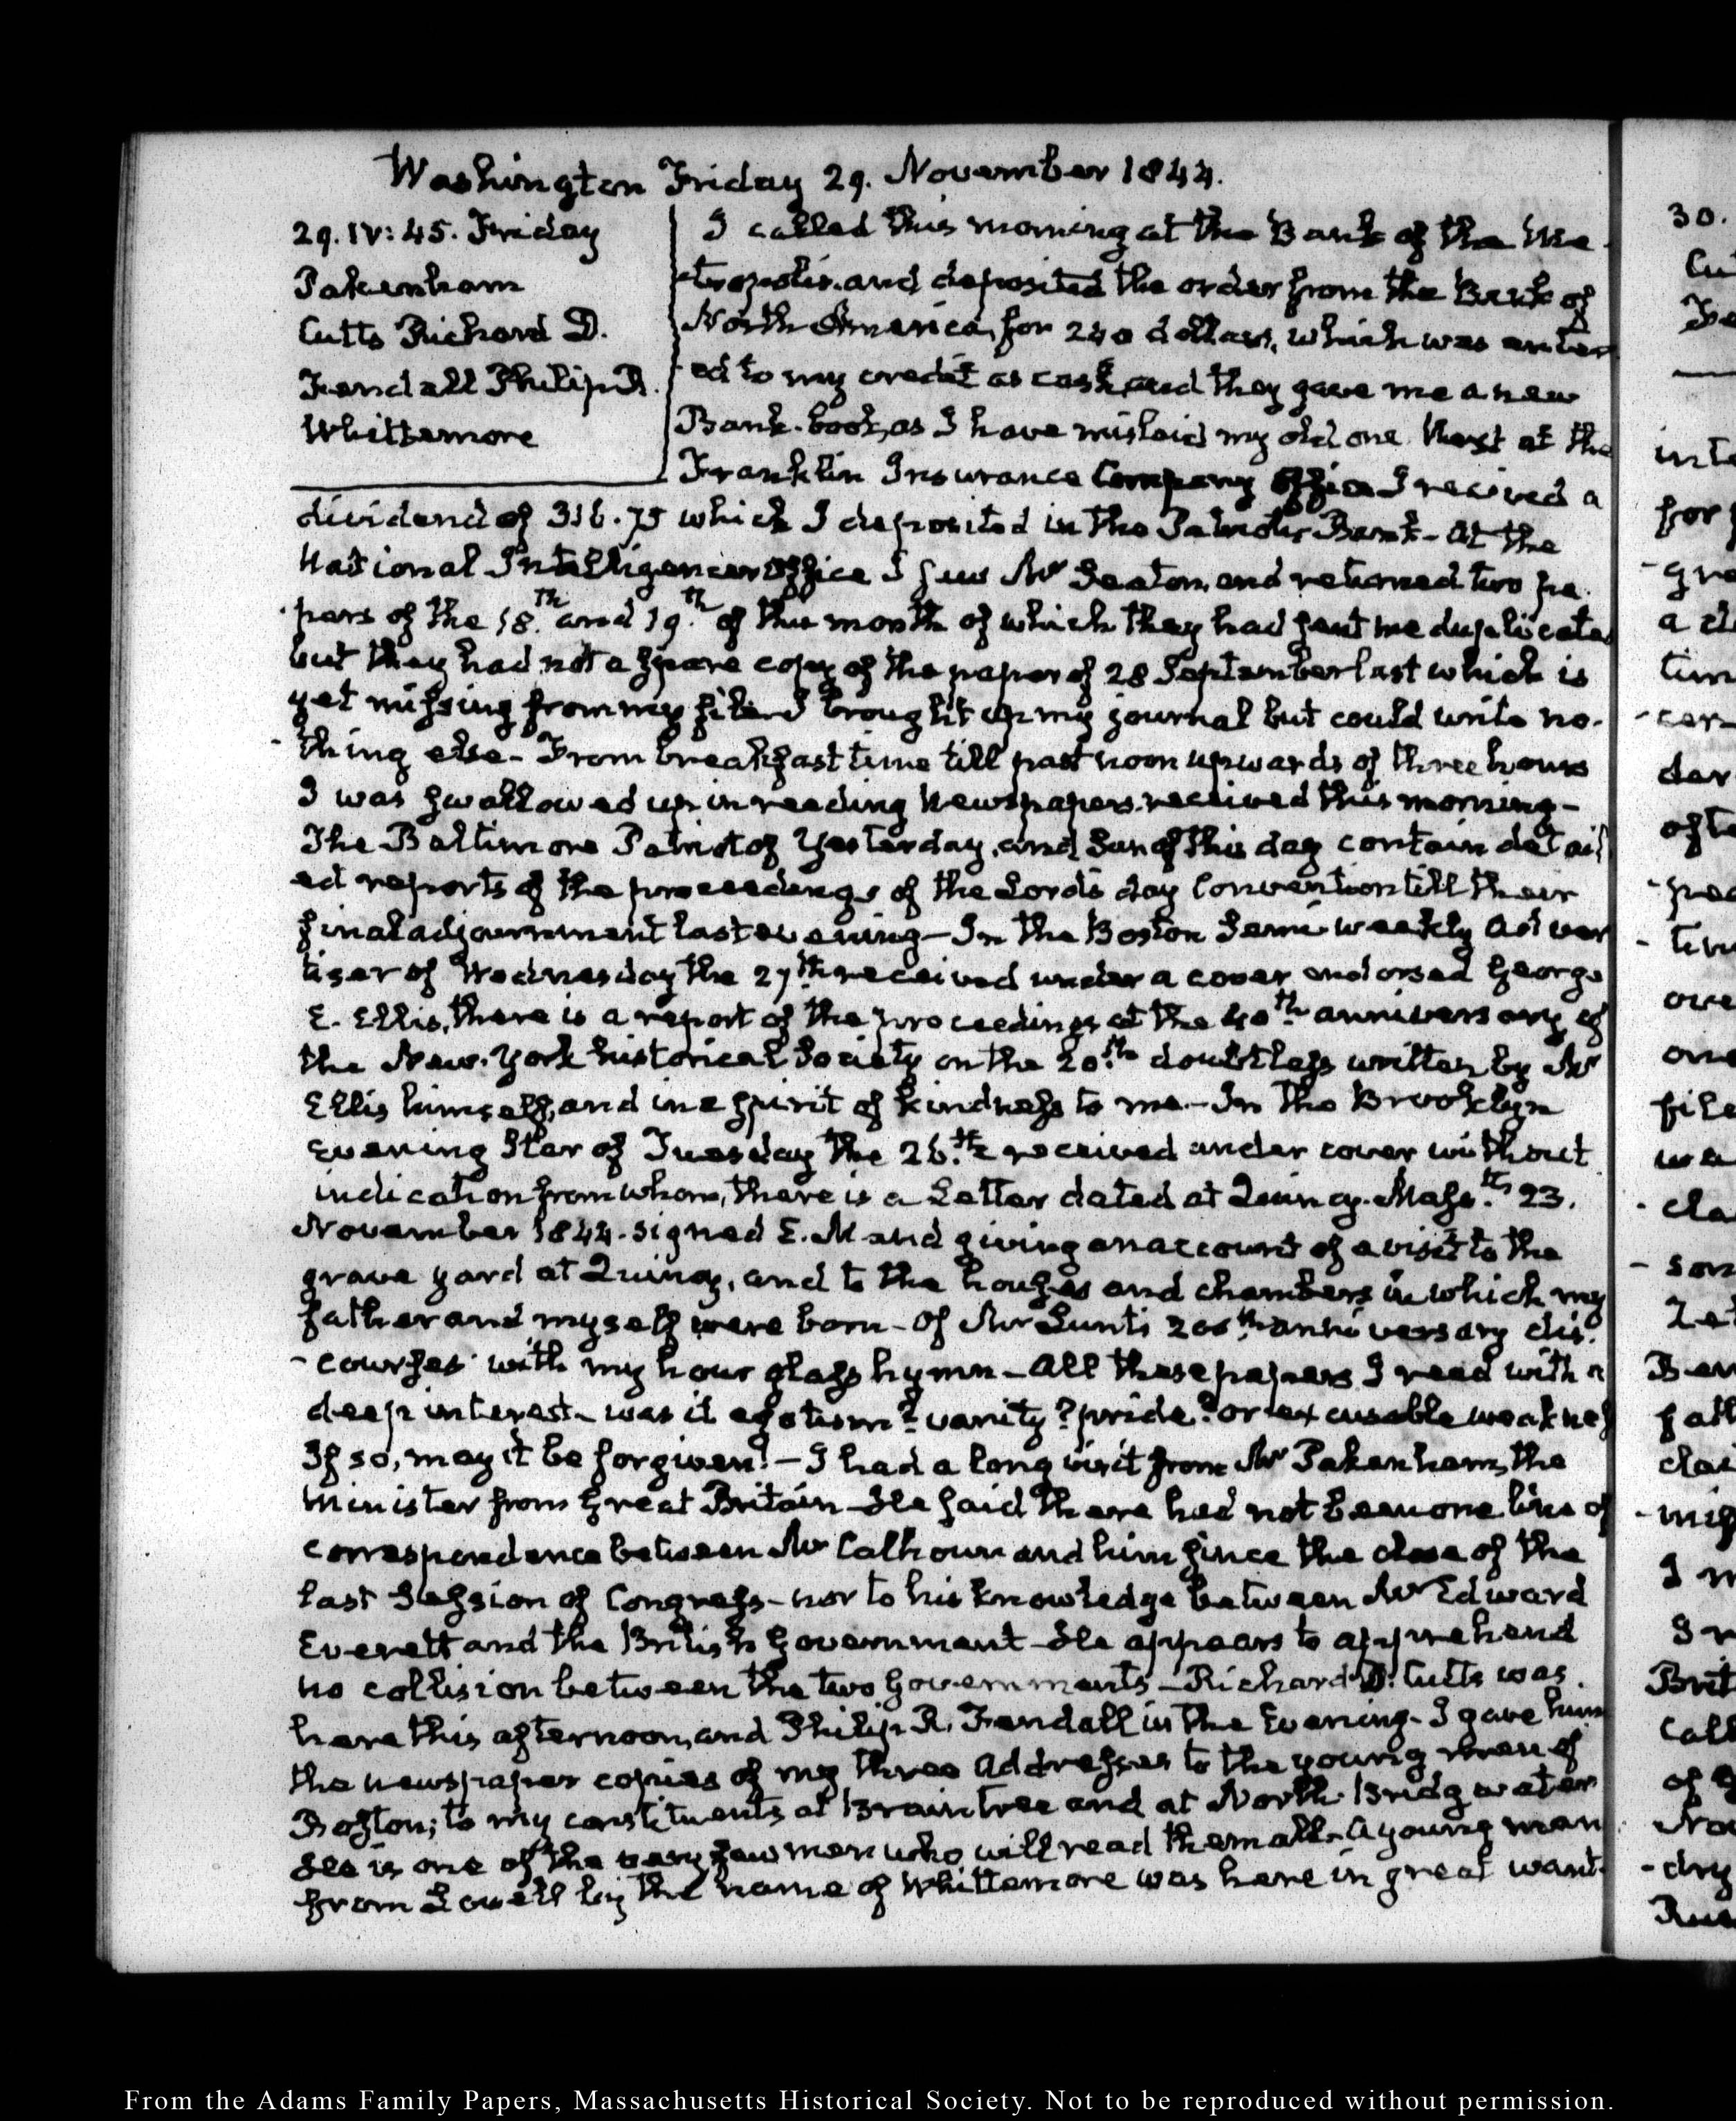 Washington Friday 29. November 1844.
29. IV: 45. Friday
Pakenham
Cutts Richard D.
Fendall Philip R.
Whittemore
I called this morning at the Bank of the Me
-tropolis. and deposited the order from the Bank of
North America, for 240 dollars, which was enter
ed to my credit as cash and they gave me a new
Bank-book, as I have mislaid my old one. Next at the
Franklin Insurance Company Office I received a
dividend of 316.75 which I deposited in the Patriotic Bank - At the
National Intelligencer Office I saw Mr Seaton, and returned two pa-
-pers of the 18th. and 19.th of this month of which they had sent me duplicates
but they had not a spare copy of the paper of 28 September last which is
yet missing from my file. I brought up my journal but could write no-
-thing else - From breakfast time till past noon upwards of three hours
I was swallowed up in reading Newspapers. received this morning -
The Baltimore Patriot of Yesterday, and Sun of this day contain detail
ed reports of the proceedings of the Lord's day Convention till their
final adjournment last evening - In the Boston Semi-weekly Adver
tiser of Wednesday the 27th. received under a cover endorsed George
E. Ellis, there is a report of the proceedings at the 40th. anniversary of
the New-York historical Society on the 20.th doubtless written by Mr
Ellis himself, and in a spirit of kindness to me - In the Brooklyn
Evening Star of Tuesday the 26.th received under cover without
indication from whom, there is a Letter dated at Quincy. Mass.ts 23.
November 1844. signed E. M and giving an account of a visit to the
grave yard at Quincy, and to the houses and chambers in which my
father and myself were born - Of Mr Lunt's 200th anniversary dis-
-courses with my hour glass hymn - All these papers I read with a
deep interest - was it egotism? vanity? pride? or excusable weakness
If so, may it be forgiven! - I had a long visit from Mr Pakenham, the
Minister from Great Britain - He said there had not been one line of
correspondence between Mr Calhoun and him since the close of the
last Session of Congress - nor to his knowledge between Mr Edward
Everett and the British Government - He appears to apprehend
no collision between the two Governments - Richard D. Cutts was
here this afternoon, and Philip R. Fendall in the Evening - I gave him
the newspaper copies of my three Addresses to the young men of
Boston; to my constituents at Braintree and at North-Bridgwater
He is one of the very few men who will read them all - A young man
from Lowell by the name of Whittemore was here in great want
From the Adams Family Papers, Massachusetts Historical Society. Not to be reproduced without permission.